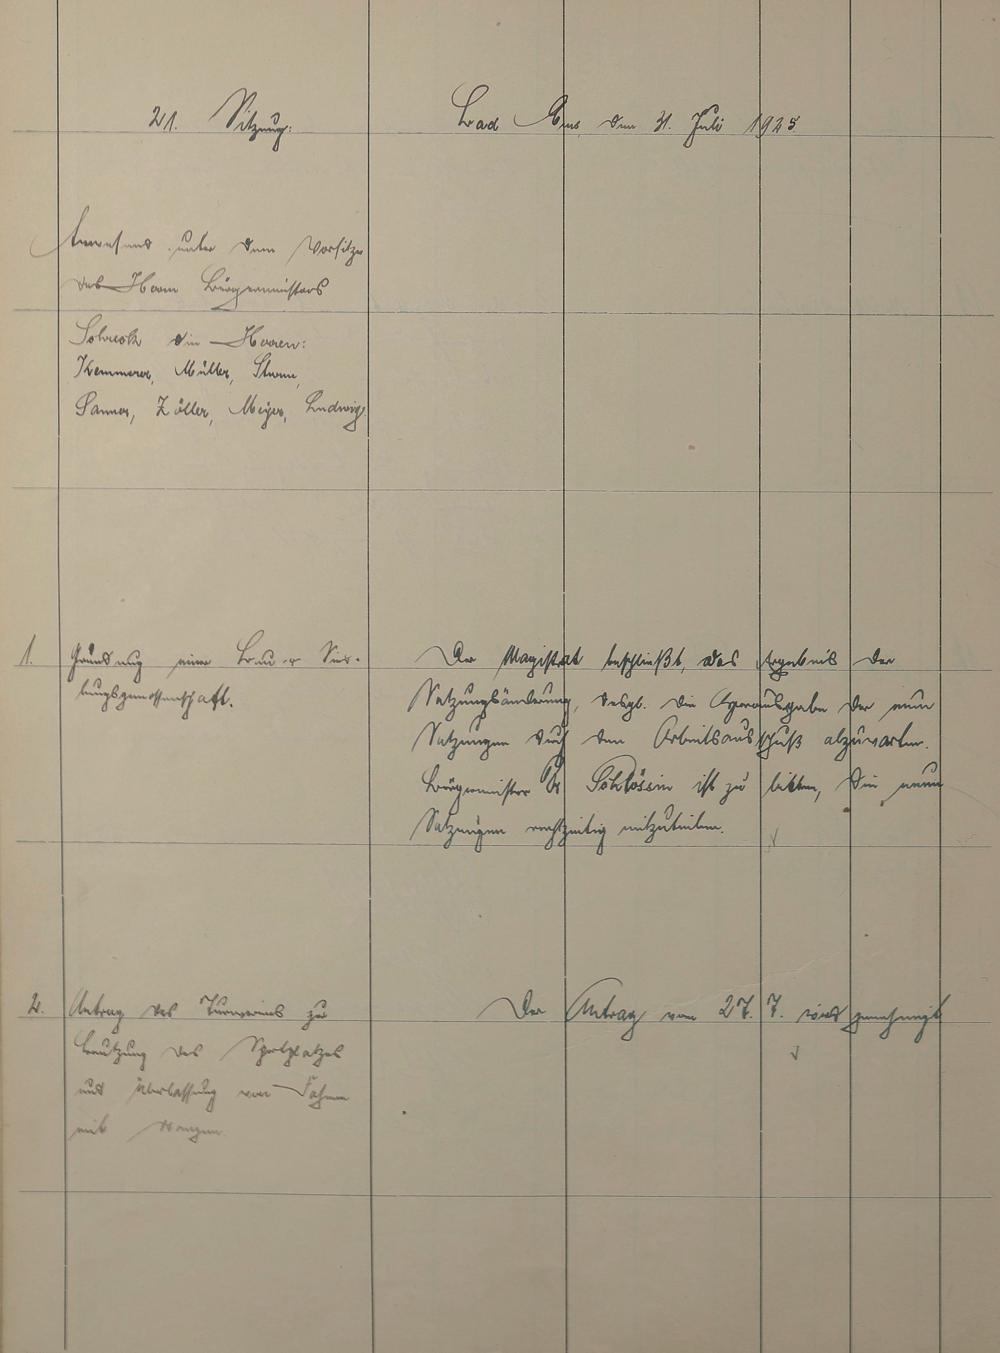 21. Sitzung. Bad Ems, den 31. Juli 1925
Anwesend unter dem Vorsitze
des Herrn Bürgermeisters
Schreck die Herren:
Kemmerer, Müller, Sturm,
Sanner, Zöller, Meyer, Ludwig.
1. Gründung einer Bau- u. Sied-
lungsgenossenschaft.
Der Magistrat beschließt, das Ergebnis der
Satzungsänderung, desgl. die Herausgabe der neuen
Satzungen durch den Arbeitsausschuß abzuwarten.
Bürgermeister Dr. Schlössin ist zu bitten, die neuen
Satzungen rechtzeitig mitzuteilen.
2. Antrag des Turnvereins zu
Benutzung des Spielplatzes
und Überlassung von Fahnen
mit
Der Antrag vom 27. 7. wird genehmigt